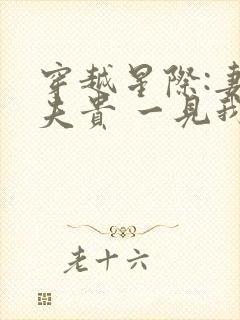 穿越星際:妻
夫貴 一見我
老十六